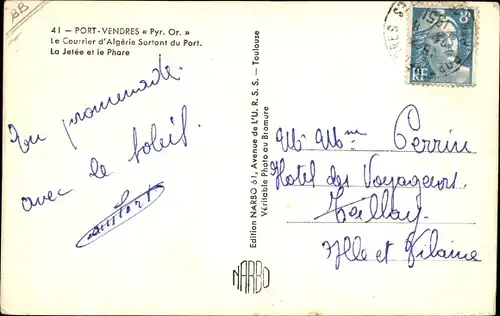 41 - PORT-VENDRES « Pyr. Or. »
Le Courrier d'Algérie Sortant du Port.
La Jetée et le Phare
En promenade.
avec le soleil.
Edition NARBO 61, Avenue de l'U. R. S. S. - Toulouse
Véritable Photo au Bromure
NARBO
RF
Mr Mme Perrin
Hotel des Voyageurs.
Teillay.
Ille et Vilaine